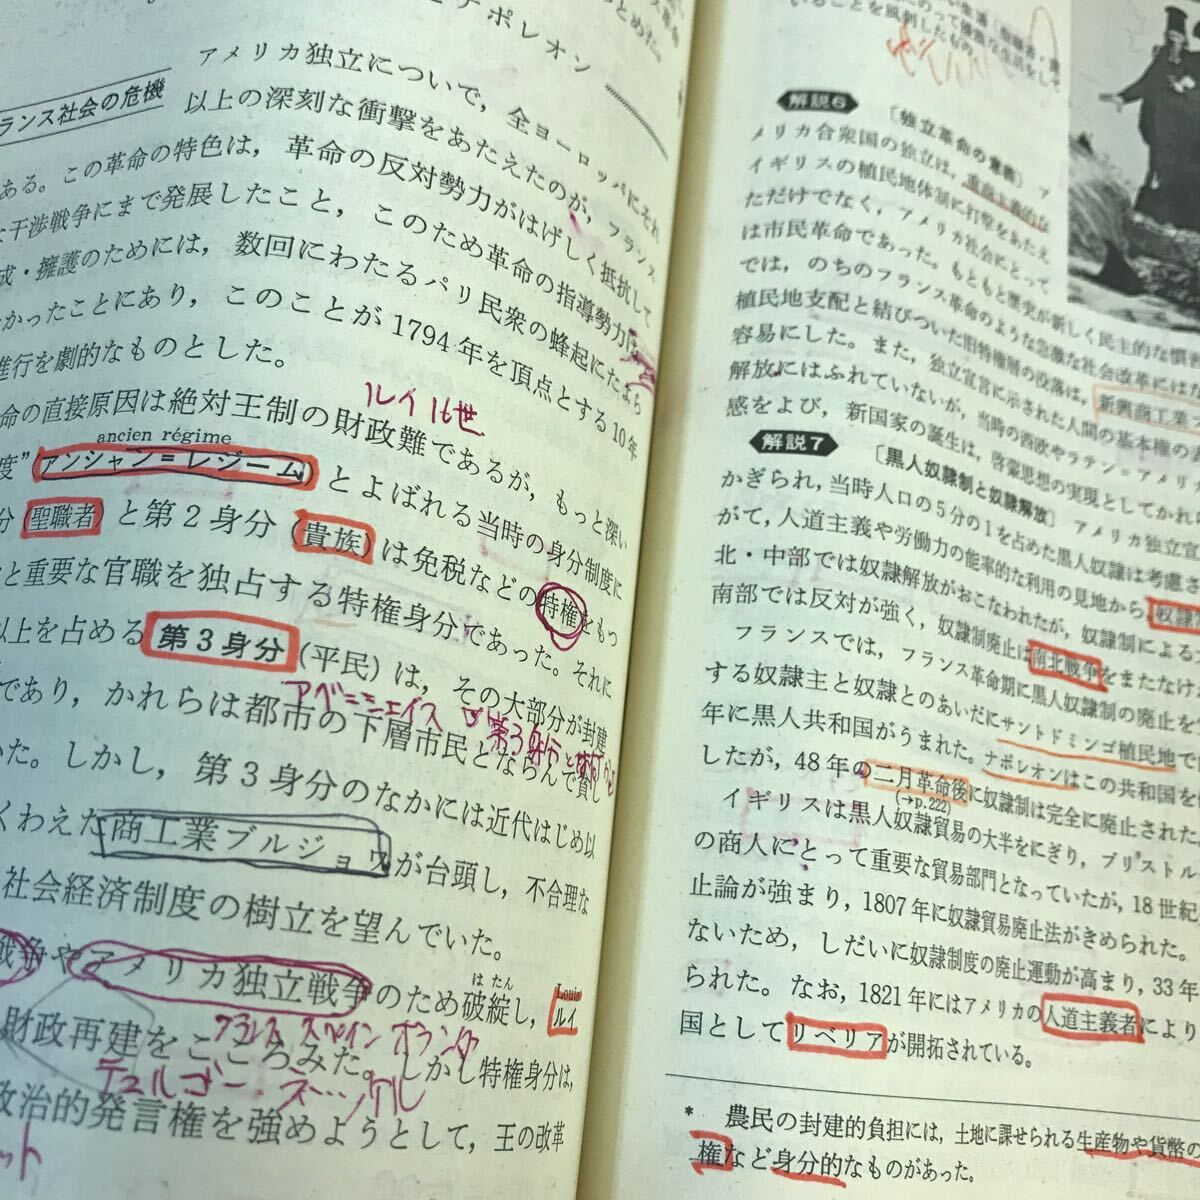 ナポレオン
ランス社会の危機
アメリカ独立について，全ヨーロッパにそれ
以上の深刻な衝撃をあたえたのが，フランス
ある。この革命の特色は，革命の反対勢力がはげしく抵抗して
な干渉戦争にまで発展したこと，このため革命の指導勢力は
成・擁護のためには，数回にわたるパリ民衆の蜂起にたよら
かったことにあり，このことが1794年を頂点とする10年
進行を劇的なものとした。
ルイ16世
命の直接原因は絶対王制の財政難であるが，もっと深い
ancien régime
度”アンシャン＝レジーム とよばれる当時の身分制度に
分（聖職者）と第2身分（貴族）は免税などの特権をもっ
と重要な官職を独占する特権身分であった。それに
以上を占める第3身分（平民）は，その大部分が封建
アベ＝シェイエス 第3身分とは何か
であり，かれらは都市の下層市民とならんで貧し
いた。しかし，第3身分のなかには近代はじめ以
くわえた商工業ブルジョワが台頭し，不合理な
社会経済制度の樹立を望んでいた。
戦争やアメリカ独立戦争のため破綻し，ルイ
はたん
Louis
フランス スペイン オランダ
財政再建をこころみた。しかし特権身分は，
テュルゴー ネッケル
政治的発言権を強めようとして，王の改革
ット
いることを風刺したもの。
解説6 〔独立革命の意義〕 ア
メリカ合衆国の独立は，重商主義的な
イギリスの植民地体制に打撃をあたえ
ただけでなく，アメリカ社会にとって
は市民革命であった。もともと歴史が新しく民主的な慣
では，のちのフランス革命のような急激な社会改革には
植民地支配と結びついた旧特権層の没落は，新興商工業
容易にした。また，独立宣言に示された人間の基本権の
解放にはふれていないが，当時の西欧やラテン＝アメリカ
感をよび，新国家の誕生は，啓蒙思想の実現としてかれ
解説7 〔黒人奴隷制と奴隷解放〕 アメリカ独立宣
かぎられ，当時人口の5分の1を占めた黒人奴隷は考慮さ
がて，人道主義や労働力の能率的な利用の見地から，奴隷
北・中部では奴隷解放がおこなわれたが，奴隷制による
南部では反対が強く，奴隷制廃止は南北戦争をまたなけ
フランスでは，フランス革命期に黒人奴隷制の廃止を
する奴隷主と奴隷とのあいだにサントドミンゴ植民地で
年に黒人共和国がうまれた。ナポレオンはこの共和国を
したが，48年の二月革命後に奴隷制は完全に廃止された。
（→p.222）
イギリスは黒人奴隷貿易の大半をにぎり，ブリストル
の商人にとって重要な貿易部門となっていたが，18世紀
止論が強まり，1807年に奴隷貿易廃止法がきめられた。
ないため，しだいに奴隷制度の廃止運動が高まり，33年
られた。なお，1821年にはアメリカの人道主義者により
国としてリベリアが開拓されている。
* 農民の封建的負担には，土地に課せられる生産物や貨幣の
権など身分的なものがあった。